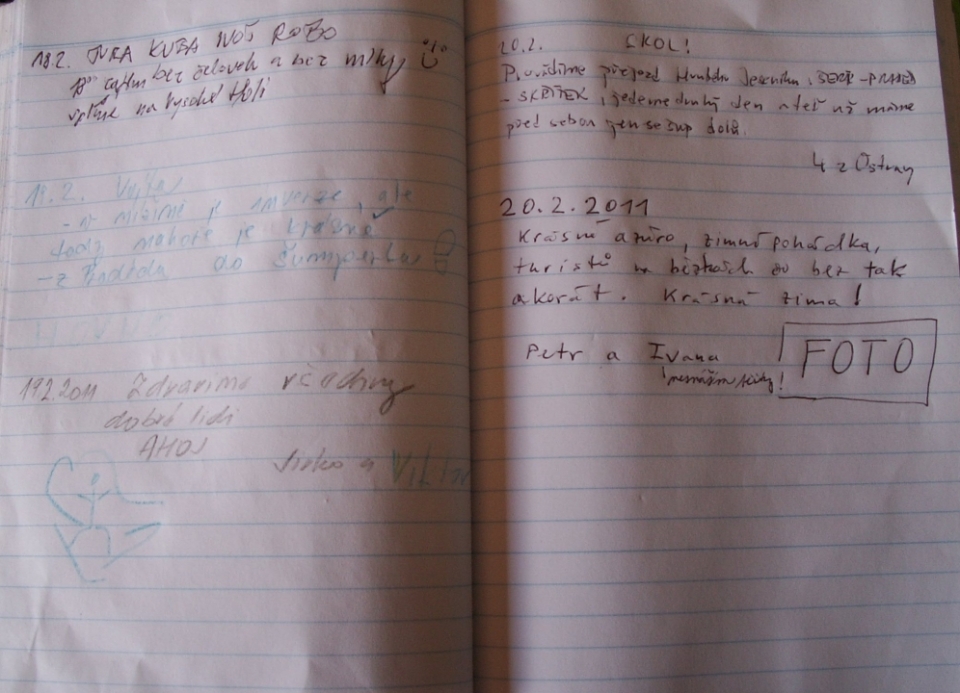 18.2. JURA KUBA NOS ROBO
bez čelovek a bez mlhy
na Vysoké Holi
19.2. Vojta
- v nížině je inverze, ale
tady nahoře je krásně
- z Pradědu do Šumperku
19.2.2011 Zdravíme všechny
dobré lidi
AHOJ
Jirko a Viktor
20.2. SKOL!
Provádíme přejezd Hrubého Jeseníku, ŠERÁK-PRADĚD
- SKŘÍTEK, jedeme druhý den a teď už máme
před sebou jen sešup dolů.
4 z Ostravy
20.2.2011
Krásné azúro, zimní pohádka,
turistů na běžkách so bez tak
akorát. Krásná zima!
Petr a Ivana
FOTO